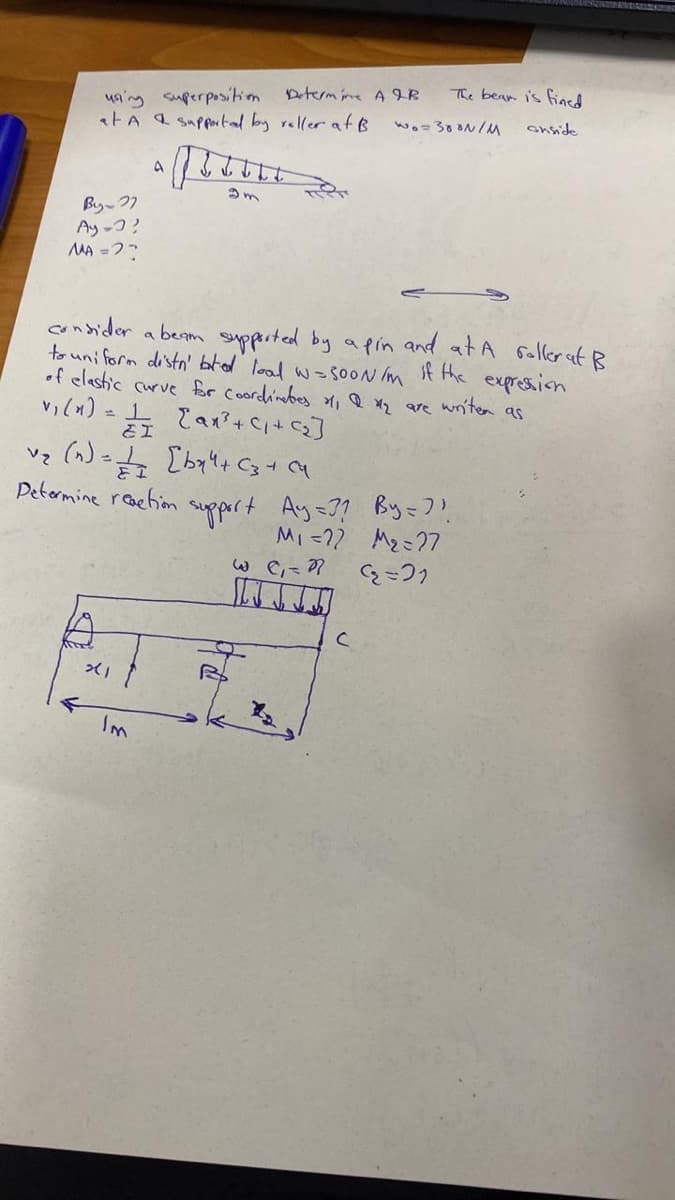 using superposition Determine A & B The beam is fined
at A & supported by roller at B w₀=300N/M
A
2m
By=??
Ay=??
MA=??
consider a beam supported by a pin and at A roller at B
to uniform distri' bted load w=500N/m if the expression
of elastic curve for coordinates x₁ & x₂ are writen as
v₁(x) = 1/EI [ax³+C₁+C₂]
v₂(x) = 1/EI [bx⁴+C₃+C₄
Determine reaction support Ay=?? By=??
M₁=?? M₂=??
w C₁=?? C₂=??
C
x₁ B
x₂
1m